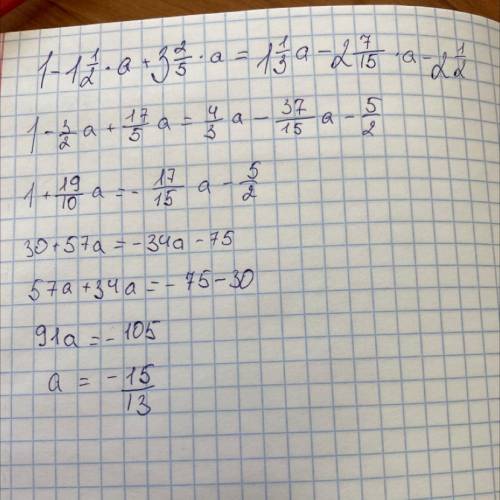 1 - 1 1/2 · a + 3 2/5 · a = 1 1/3 a - 2 7/15 · a - 2 1/2
1 - 3/2 a + 17/5 a = 4/3 a - 37/15 a - 5/2
1 + 19/10 a = - 17/15 a - 5/2
30 + 57a = - 34a - 75
57a + 34a = - 75 - 30
91a = - 105
a = - 15/13